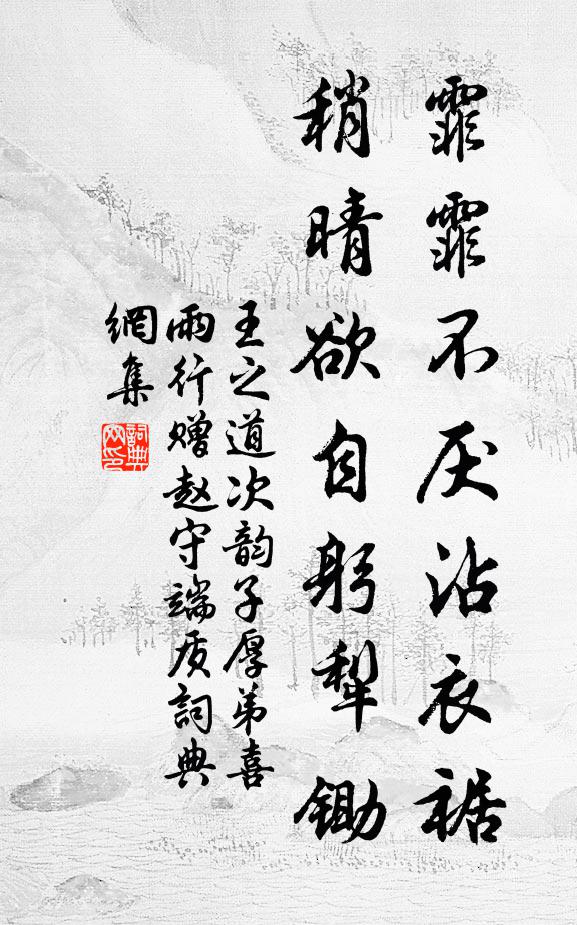 霏霏不厌沾衣裾
稍晴欲自躬犁锄
王之道次韵子厚弟喜
雨行赠赵守端质詞典
網集
詞典网印